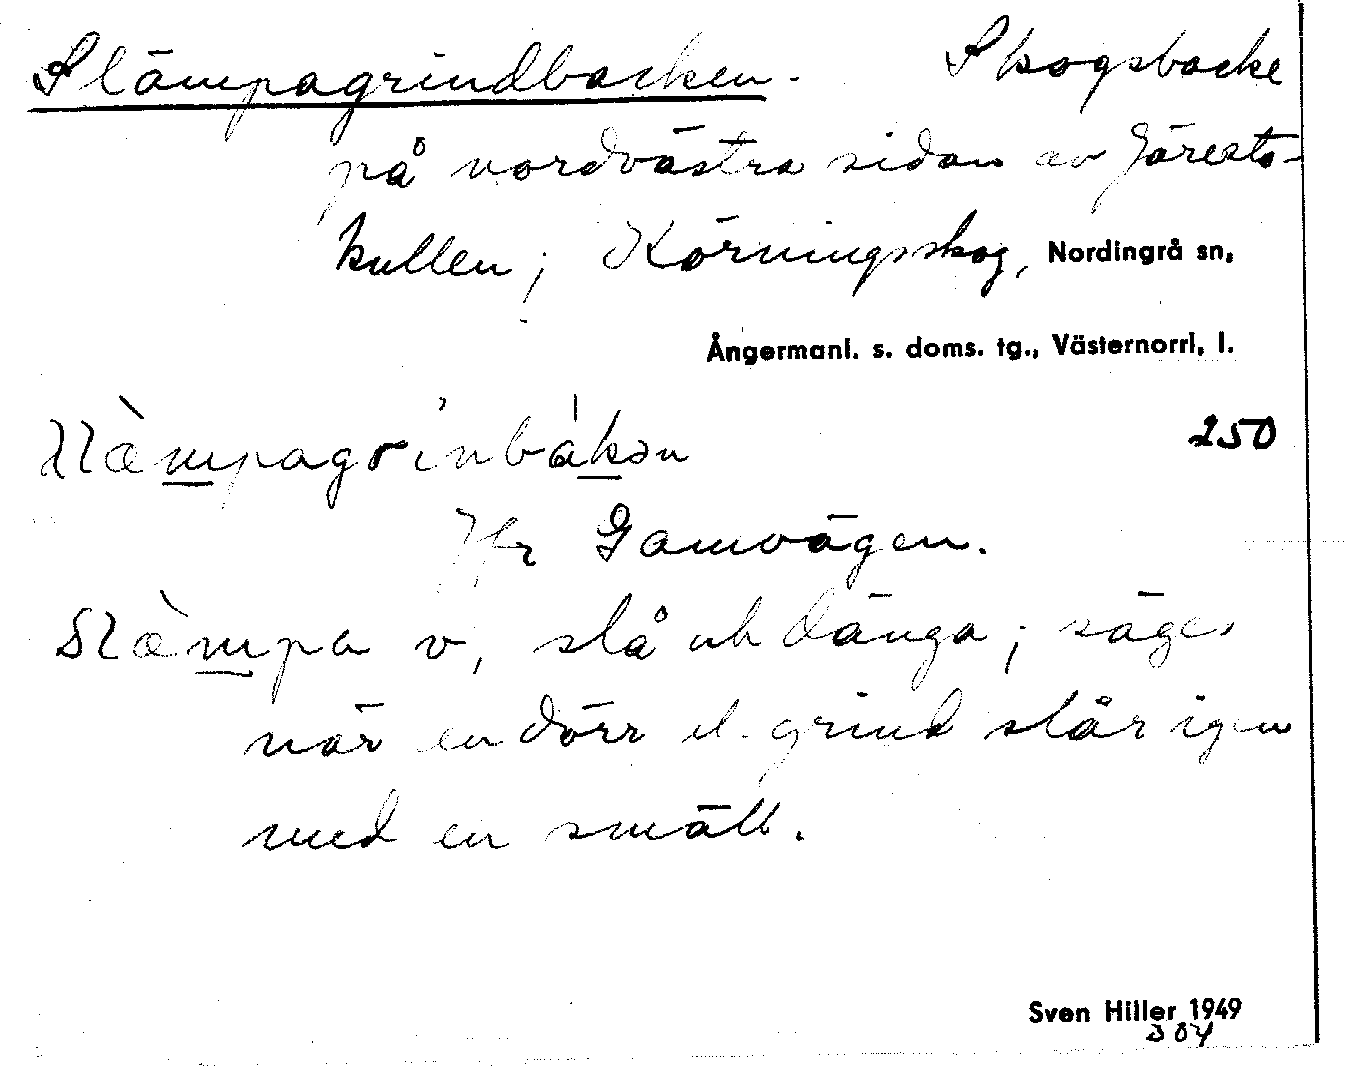 Slämpagrindbacken. Skogsbacke
på nordvästra sidan av Järesta-
kullen; Körningsskog, Nordingrå sn,
Ångermanl. s. doms. tg., Västernorrl, l.
slæ̀mpagrinbákən 250
Jfr Gamvägen.
Slæ̀mpa v, slå och dänga; säges
när en dörr el. grind slår igen
med en smäll.
Sven Hiller 1949
304